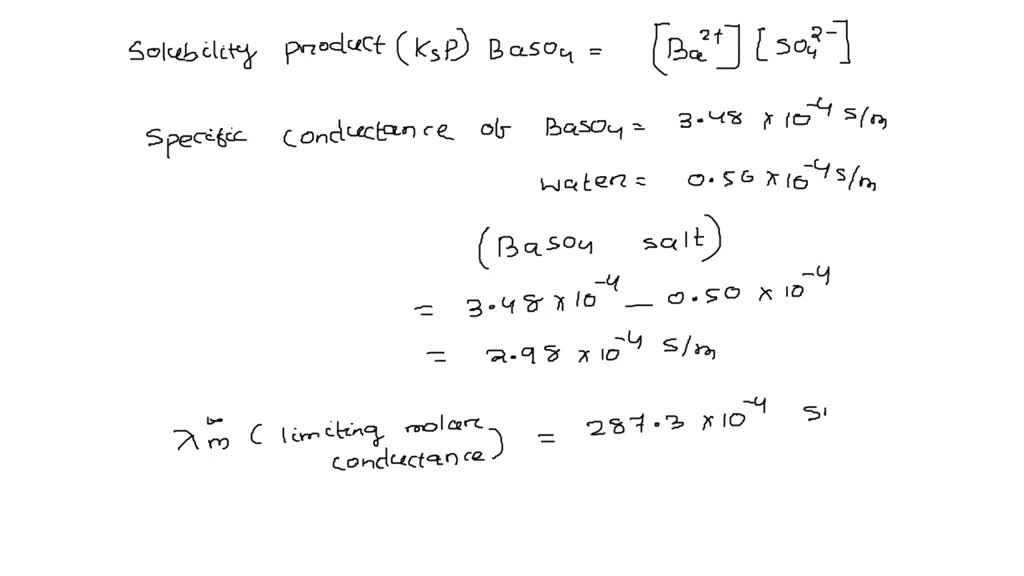 Solubility product (KsP) BaSO4 = [Ba2+] [SO4 2-]
Specific conductance of BaSO4 = 3.48 × 10-4 S/m
water = 0.50 × 10-4 S/m
(BaSO4 salt)
= 3.48 × 10-4 - 0.50 × 10-4
= 2.98 × 10-4 S/m
λ∞m (limiting molar conductance) = 287.3 × 10-4 S